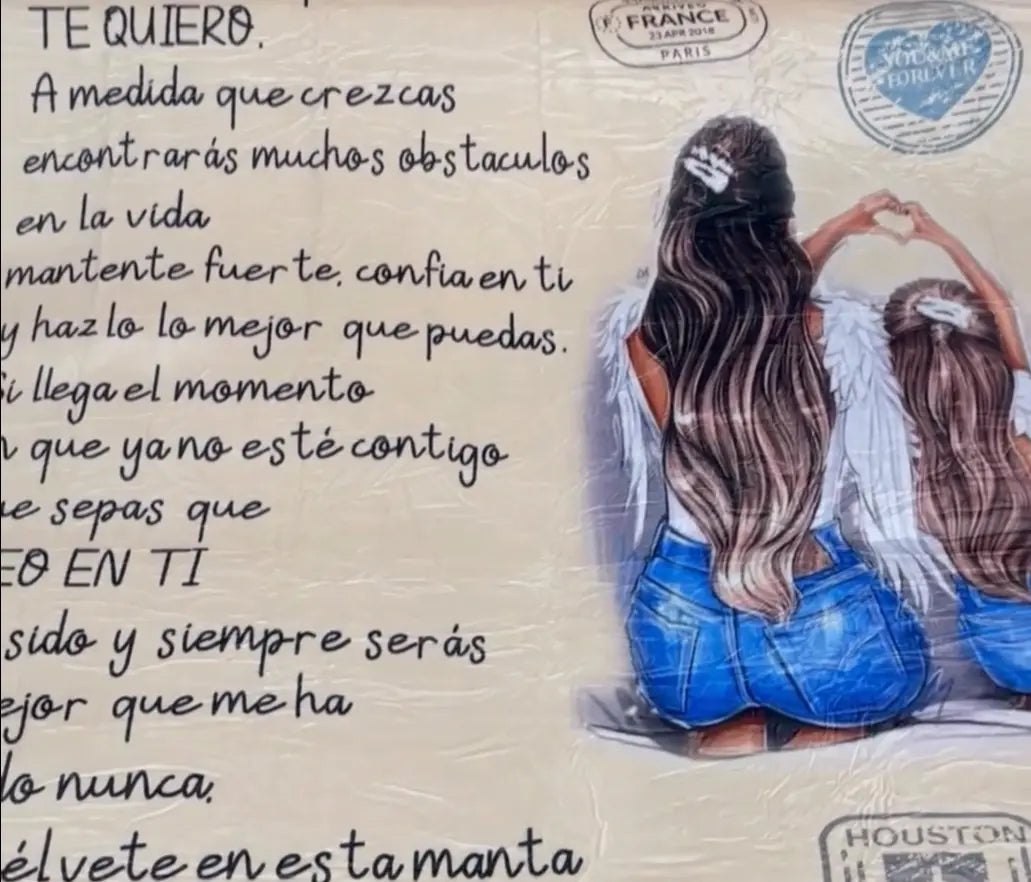 TE QUIERO.
A medida que crezcas
encontrarás muchos obstaculos
en la vida
mantente fuerte. confia en ti
y hazlo lo mejor que puedas.
Si llega el momento
que ya no esté contigo
sepas que
EN TI
sido y siempre serás
que me ha
nunca.
en esta manta
FRANCE
23 APR 2018
PARIS
YOU&ME
FOREVER
HOUSTON